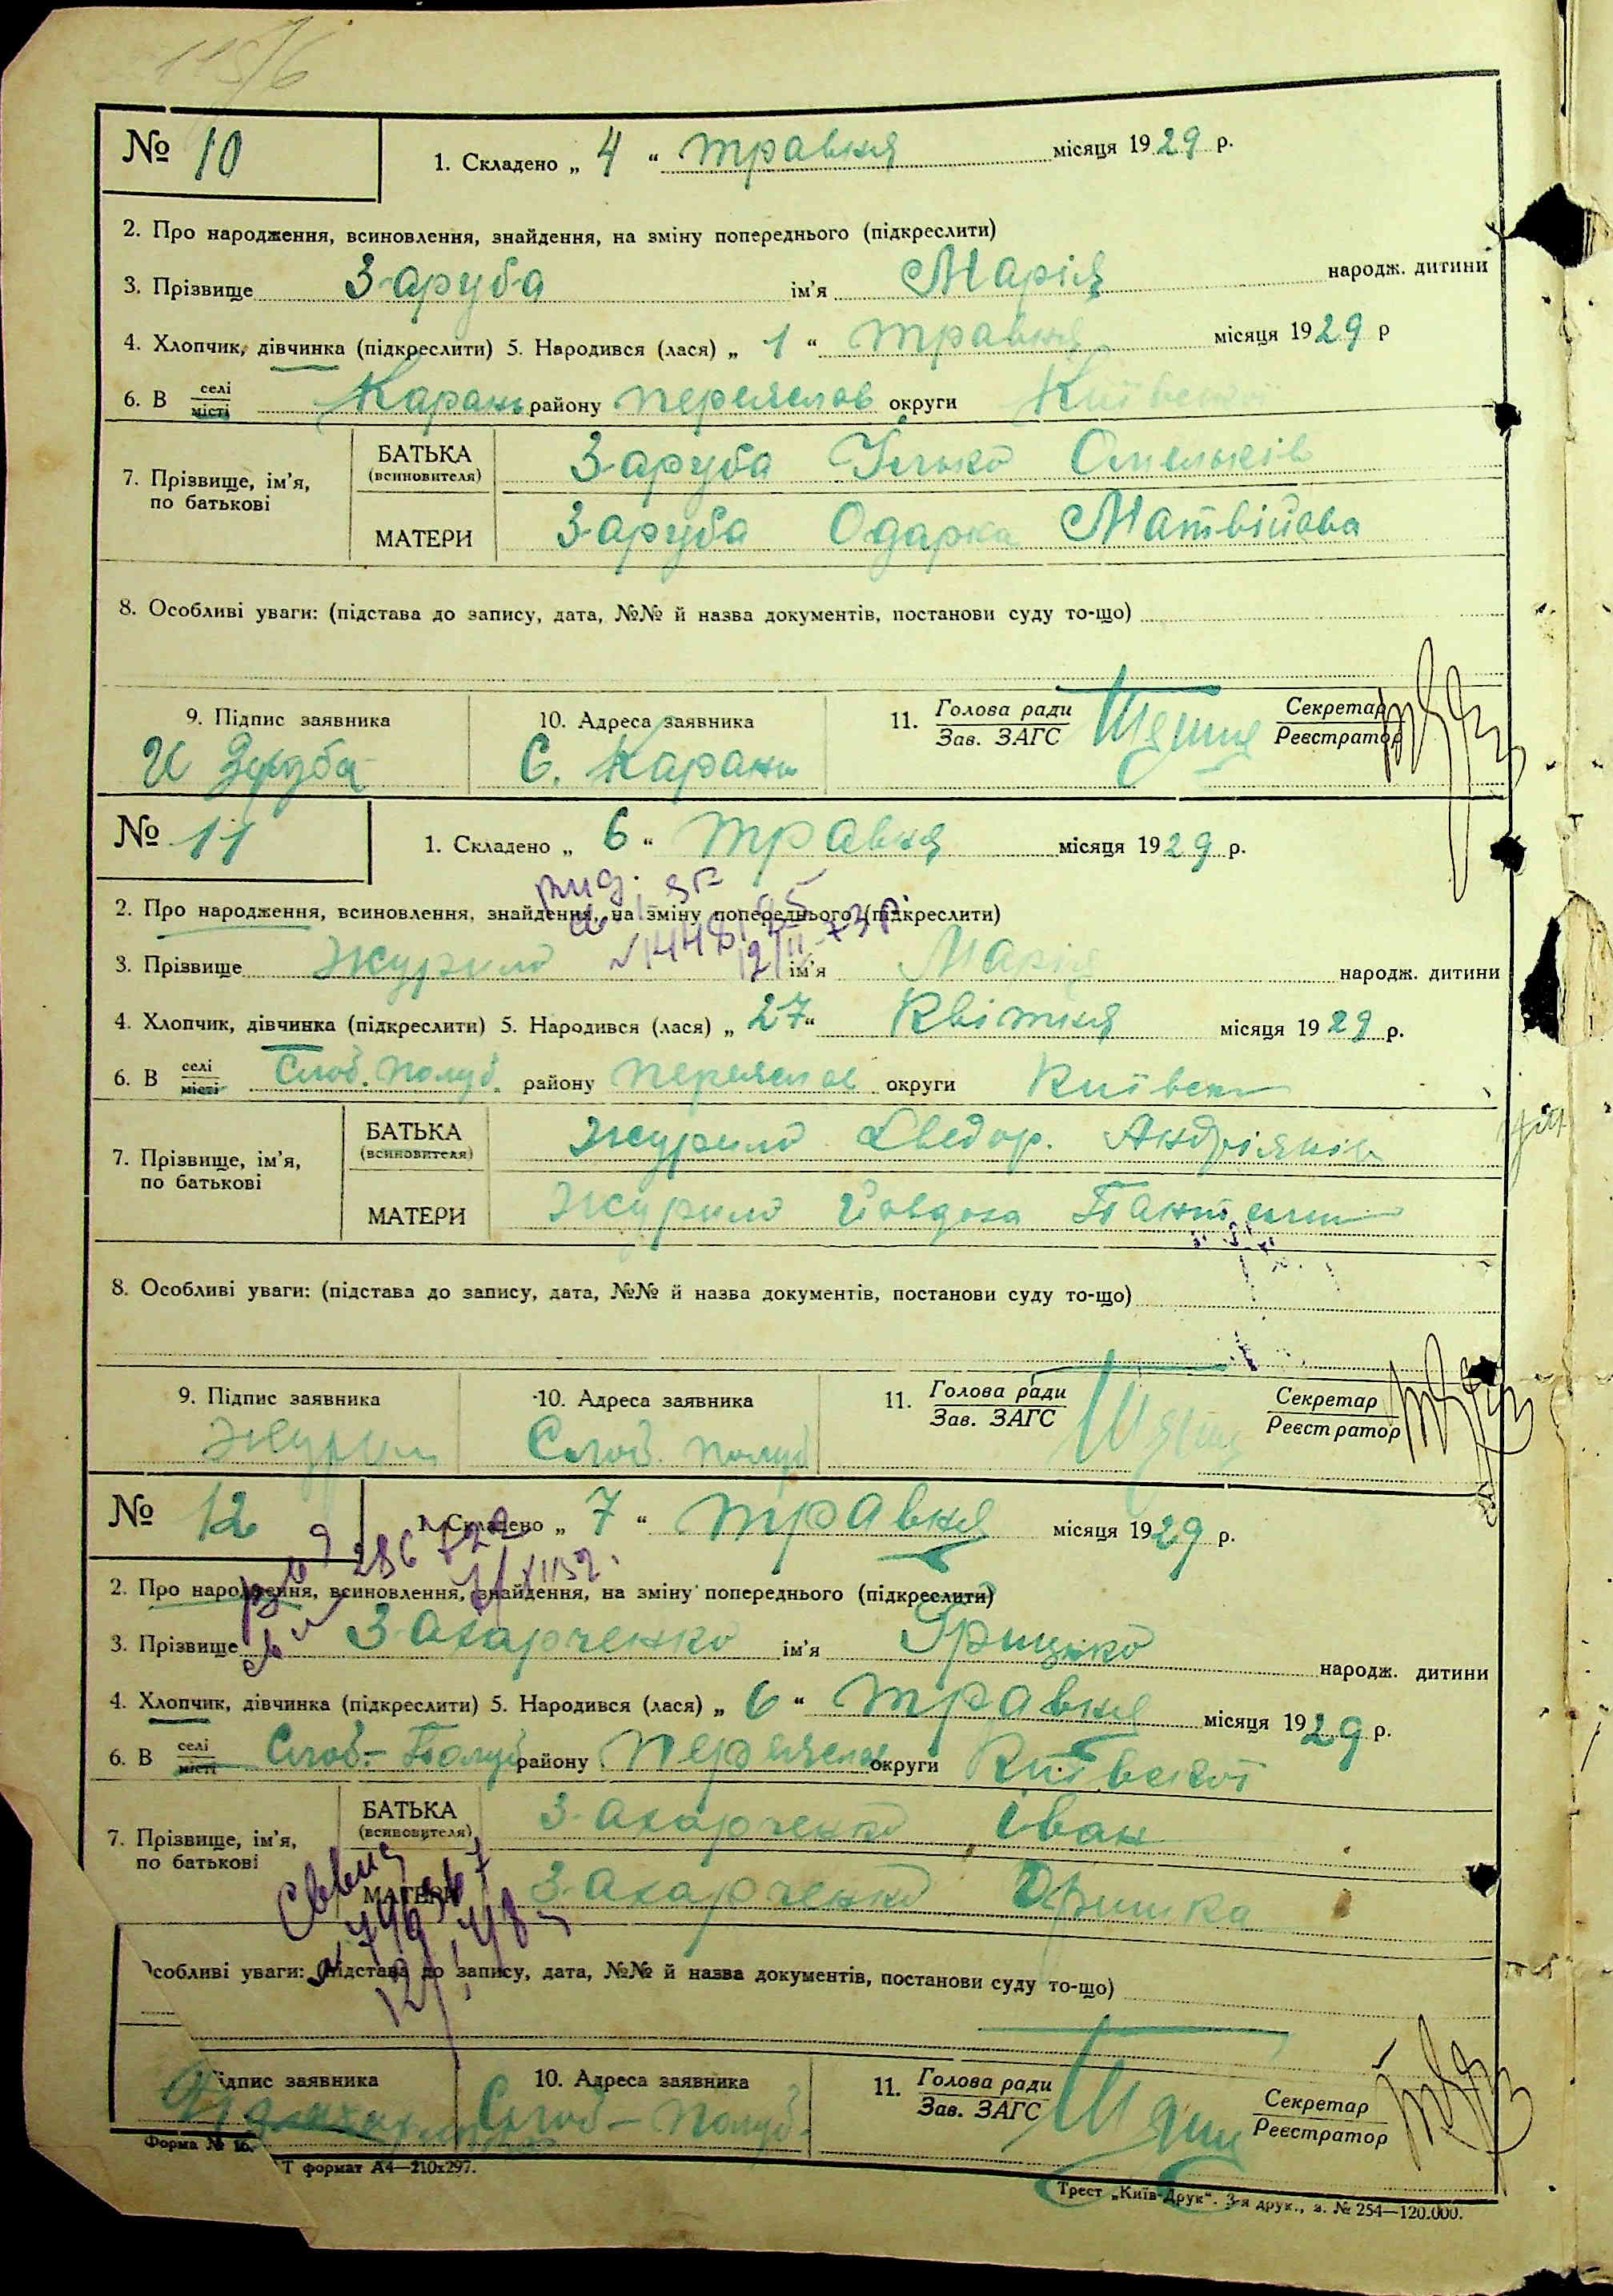 115/6
№ 10 1. Складено „ 4 “ травня місяця 1929 р.
2. Про народження, всиновлення, знайдення, на зміну попереднього (підкреслити)
3. Прізвище Заруба ім'я Марія народж. дитини
4. Хлопчик, дівчинка (підкреслити) 5. Народився (лася) „ 1 “ травня місяця 1929 р
6. В селі місті Карань району переяслав округи Київської
7. Прізвище, ім'я, по батькові
БАТЬКА (всиновителя) Заруба Ілько Омельків
МАТЕРИ Заруба Одарка Матвійова
8. Особливі уваги: (підстава до запису, дата, №№ й назва документів, постанови суду то-що)
9. Підпис заявника 10. Адреса заявника 11. Голова ради Зав. ЗАГС Секретар Реєстратор
И Заруба С. Карань
№ 11 1. Складено „ 6 “ травня місяця 1929 р.
2. Про народження, всиновлення, знайдення, на зміну попереднього (підкреслити)
3. Прізвище Журило ім'я Марія народж. дитини
4. Хлопчик, дівчинка (підкреслити) 5. Народився (лася) „ 27 “ Квітня місяця 1929 р.
6. В селі місті Слоб. Полуб. району переяслав округи Київськ
7. Прізвище, ім'я, по батькові
БАТЬКА (всиновителя) Журило Хведор. Андріяків
МАТЕРИ Журило Йовдоха
8. Особливі уваги: (підстава до запису, дата, №№ й назва документів, постанови суду то-що)
9. Підпис заявника 10. Адреса заявника 11. Голова ради Зав. ЗАГС Секретар Реєстратор
Журил Слоб. Полуб
№ 12 1. Складено „ 7 “ травня місяця 1929 р.
2. Про народження, всиновлення, знайдення, на зміну попереднього (підкреслити)
3. Прізвище Захарченко ім'я Грицько народж. дитини
4. Хлопчик, дівчинка (підкреслити) 5. Народився (лася) „ 6 “ травня місяця 1929 р.
6. В селі місті Слоб-Полуб району Переяслав округи Київської
7. Прізвище, ім'я, по батькові
БАТЬКА (всиновителя) Захарченко Іван
МАТЕРИ Захарченко Оришка
собливі уваги: (підстава до запису, дата, №№ й назва документів, постанови суду то-що)
ідпис заявника 10. Адреса заявника 11. Голова ради Зав. ЗАГС Секретар Реєстратор
Слоб-Полуб.
Форма № 16.
Т формат А4—210х297.
Трест „Київ-Друк“. 3-я друк., з. № 254—120.000.